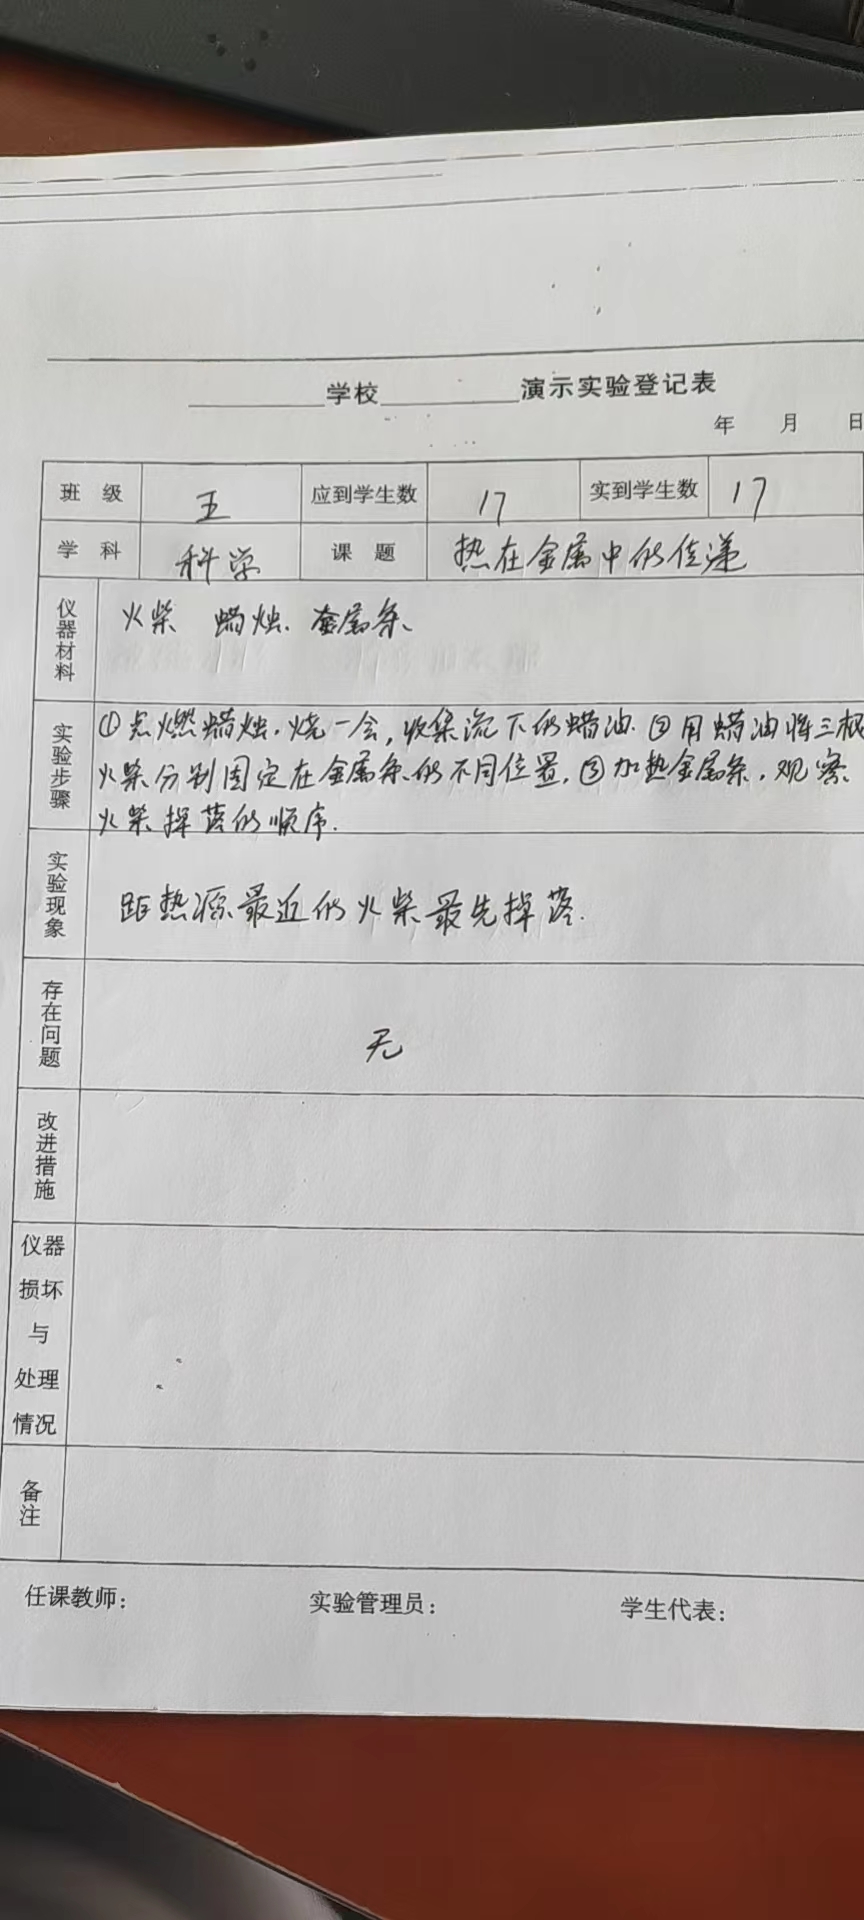 ______学校______演示实验登记表
年 月 日
班 级 五 应到学生数 17 实到学生数 17
学 科 科学 课 题 热在金属中的传递
仪器材料 火柴 蜡烛. 金属条.
实验步骤 ①点燃蜡烛.烧一会,收集流下的蜡油.②用蜡油将三根
火柴分别固定在金属条的不同位置,③加热金属条.观察
火柴掉落的顺序.
实验现象 距热源最近的火柴最先掉落.
存在问题 无
改进措施
仪器
损坏
与
处理
情况
备注
任课教师: 实验管理员: 学生代表: